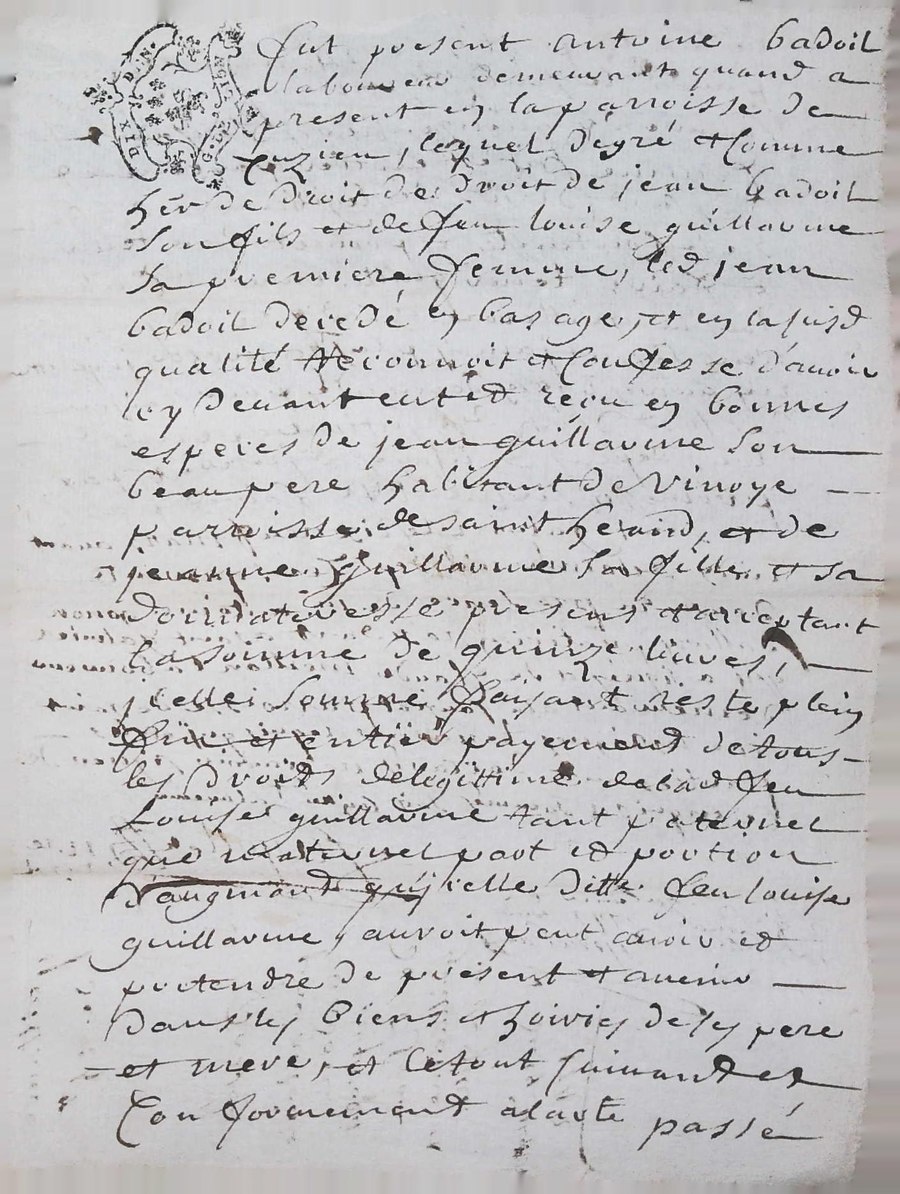 DIX D. N.
G. DE LYON
fut present antoine badoil
laboureur demeurant quand a
present en la parroisse de
Cuzieu, lequel de gré et Comme
her de droit de droit de jean badoil
son fils et de feu louise guillaume
sa premiere femme, led jean
badoil decedé en bas age, et en la susd
qualité Reconnoit et Confesse d'avoir
cy devant eut et reçu en bonnes
especes de jean guillaume son
beau pere habitant de Vinoye
parroisse de saint heand, et de
jeanne guillaume sa fille et sa
donnataresse presens et acceptant
la somme de quinze livres,
jcelle somme faisant reste plein
fin et entier payement de tous
les droits de legittime de lad feu
Louise guillaume tant paternel
que maternel part et portion
d'augment qu'jcelle ditte feu louise
guillaume, auroit peut avoir et
pretendre de present et avenir
dans les biens et hoiries de ses pere
et mere, et le tout suivand et
Conformement a lacte passé